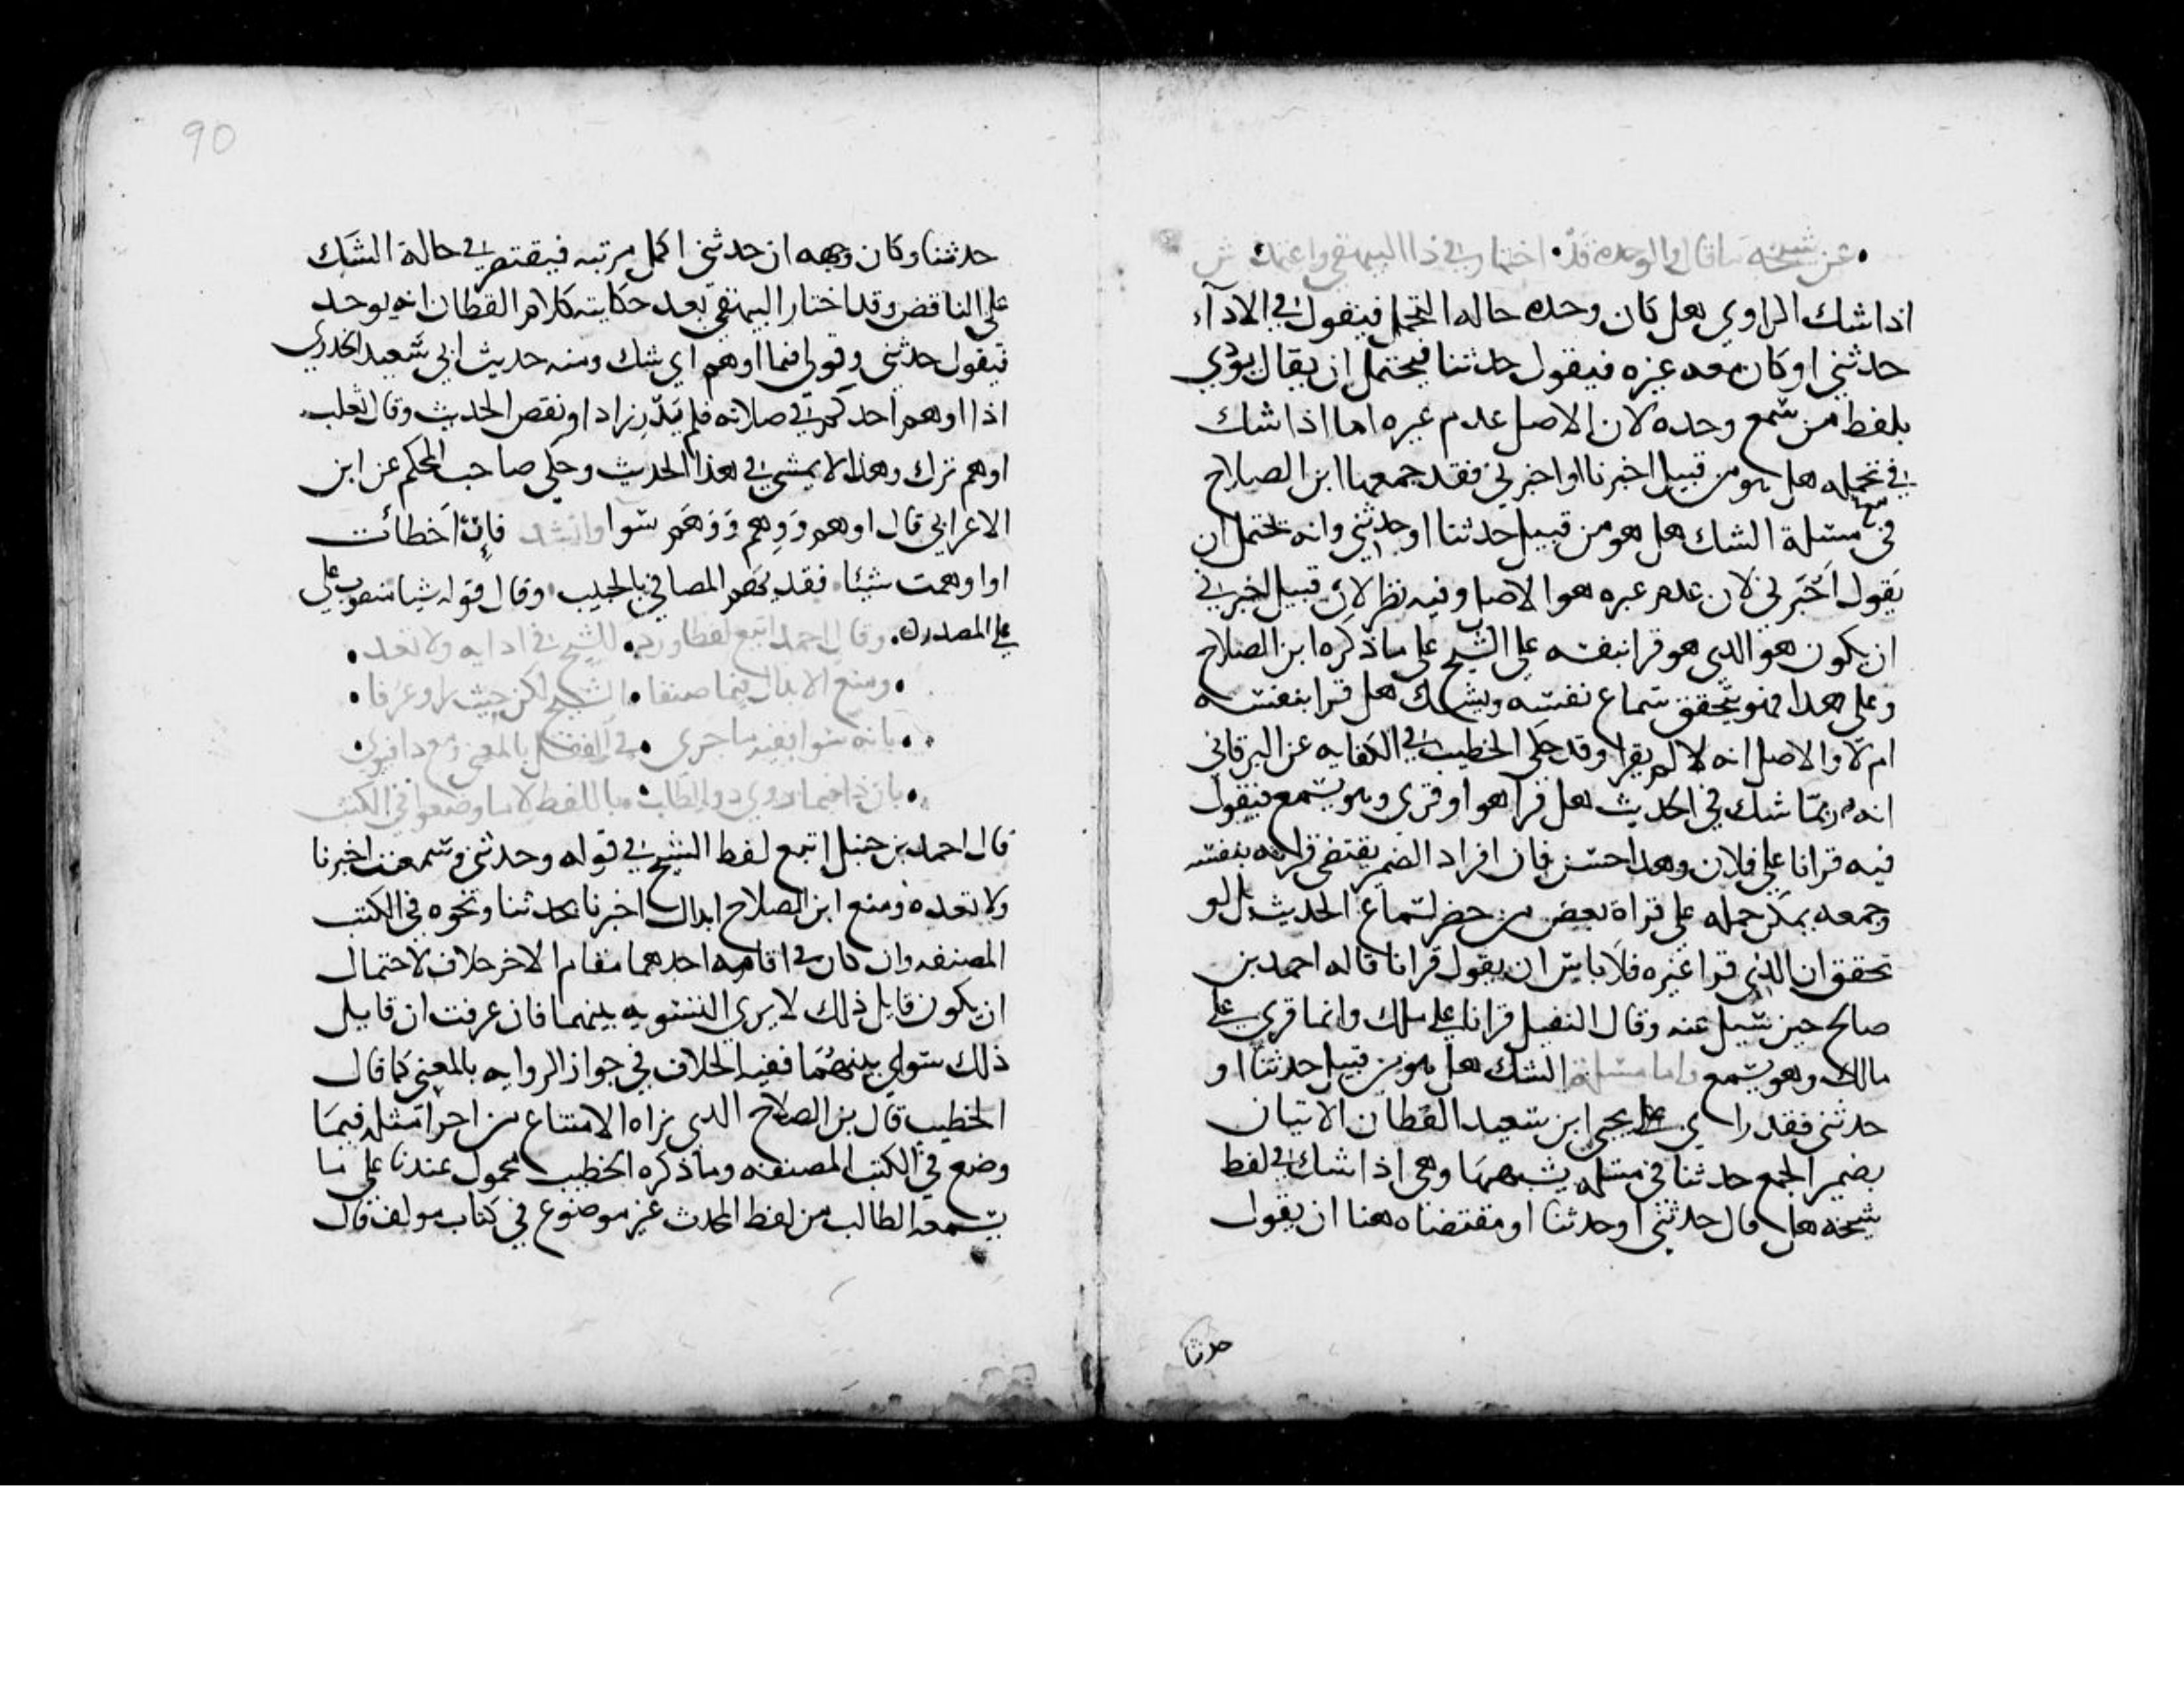 عن شيخه ما قال والوحده قد • اختار في ذا البيهقي واعتمد ش
اذا شك الراوي هل كان وحده حاله التحمل فيقول في الادآء
حدثني او كان معه غيره فيقول حدثنا فيحتمل ان يقال يودي
بلفظ من سمع وحده لان الاصل عدم غيره اما اذا شك
في تحمله هل هو من قبيل اخبرنا او اخبرني فقد جمعهما ابن الصلاح
في مسئلة الشك هل هو من قبيل حدثنا او حدثني وانه يحتمل ان
يقول اخبرني لان عدم غيره هو الاصل وفيه نظر لان قبيل اخبرني
ان يكون هو الذي هو قرا بنفسه على الشيخ على ما ذكره ابن الصلاح
وعلى هذا فهو يتحقق سماع نفسه ويشك هل قرا بنفسه
ام لا والاصل انه لا لم يقرا وقد حكى الخطيب في الكفايه عن البرقاني
انه ربما شك في الحديث هل قرا هو او قري وهو يسمع فيقول
فيه قرانا على فلان وهذا حسن فان افراد الضمير يقتضي قراته بنفسه
وجمعه يمكن حمله على قراة بعض من حضر لسماع الحديث بل لو
تحقق ان الذي قرا غيره فلا باس ان يقول قرانا قاله احمد بن
صالح حين سيل عنه وقال النفيلي قرانا على ملك وانما قري على
مالك وهو يسمع واما مسئلة الشك هل هو من قبيل حدثنا او
حدثني فقد راي يحيى ابن سعيد القطان الاتيان
بضمير الجمع حدثنا في مسئله يشبهها وهي اذا شك في لفظ
شيخه هل قال حدثني او حدثنا او مقتضاه هنا ان يقول
حدثنا
90
حدثنا وكان وجهه ان حدثني اكمل مرتبه فيقتصر في حالة الشك
على الناقص وقد اختار البيهقي بعد حكايته كلام القطان انه يوحد
فيقول حدثني وقولي فما اوهم اي شك ومنه حديث ابي سعيد الخدري
اذا اوهم احدكم في صلاته فلم يدر زاد او نقص الحديث وقال ثعلب
اوهم ترك وهذا لا يمشي في هذا الحديث وحكى صاحب المحكم عن ابن
الاعرابي قال اوهم ووهم ووهم سوا وانشد فان اخطات
او اوهمت شيئا • فقد يهم المصافي بالحبيب وقال قوله شيا منصوب على
على المصدر ن • وقال احمد اتبع لفظا ورد • للشيخ في ادايه ولا تعد •
• ومنع الابدال فيما صنفا • الشيخ لكن حيث راو عرفا •
• بانه سوا ففيه ما جرى • في النقل بالمعنى ومع ذا فيرى •
• بان ذا فيما روى ذو الطلب • باللفظ لا ما وضعوا في الكتب
قال احمد بن حنبل اتبع لفظ الشيخ في قوله وحدثني وسمعت اخبرنا
ولا تعده ومنع ابن الصلاح ابدال اخبرنا بحدثنا ونحوه في الكتب
المصنفه وان كان في اقامه احدهما مقام الاخر خلاف لاحتمال
ان يكون قايل ذلك لا يرى التسويه بينهما فان عرفت ان قايل
ذلك سوى بينهما ففيه الخلاف في جواز الروايه بالمعنى كما قال
الخطيب قال بن الصلاح الذي نراه الامتناع من اجرا مثله فيما
وضع في الكتب المصنفه وما ذكره الخطيب محمول عندنا على ما
يسمعه الطالب من لفظ المحدث غير موضوع في كتاب مولف قال